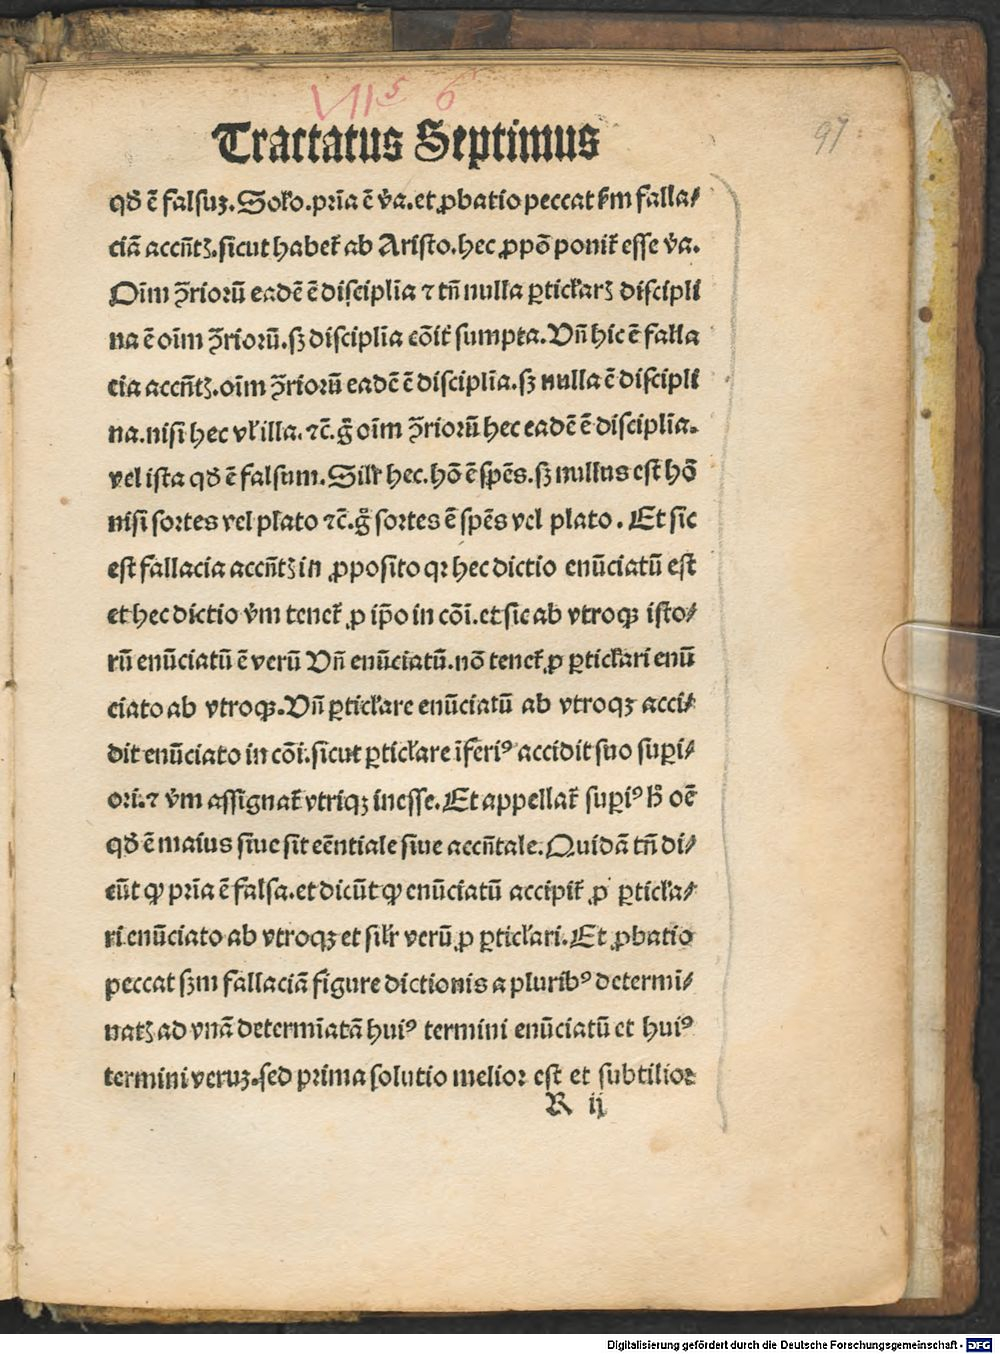 VII 5 6
97
Tractatus Septimus
qđ ē falsuꝫ. Soł̉o. pꝛīa ē v̉a. et ꝓbatio peccat fm falla⸗
ciā accñtꝫ. sicut habet᷑ ab Aristo. hec ꝓpō ponit᷑ esse v̉a.
Oīm ꝯ̄rioꝛū eadē ē disciplīa ⁊ tñ nulla ꝑticl̓arꝫ discipli
na ē oīm ꝯ̄rioꝛū. sꝫ disciplīa cōit᷑ sumpta. Vñ hic ē falla
cia accñtꝫ. oīm ꝯ̄rioꝛū eadē ē disciplīa. sꝫ nulla ē discipli
na. nisi hec vl̓ illa. ⁊c̄. g̊ oīm ꝯ̄rioꝛū hec eadē ē disciplīa.
vel ista qđ ē falsum. Sil̓r hec. hō ē spēs. sꝫ nullus est hō
nisi soꝛtes vel plato ⁊c̄. g̊ soꝛtes ē spēs vel plato. Et sic
est fallacia accñtꝫ in ꝓposito qꝛ hec dictio enūciatū est
et hec dictio v̉m tenet᷑ ꝓ ip̄o in cōi. et sic ab vtroqꝫ isto⸗
rū enūciatū ē verū Vñ enūciatū. nō tenet᷑ ꝓ ꝑticl̓ari enū
ciato ab vtroqꝫ. Vñ ꝑticl̓are enūciatū ab vtroqꝫ acci⸗
dit enūciato in cōi. sicut ꝑticl̓are īferiꝰ accidit suo suꝑi⸗
oꝛi. ⁊ v̉m assignat᷑ vtriqꝫ inesse. Et appellat᷑ suꝑiꝰ h̄ oē
qđ ē maius siue sit eēntiale siue accñtale. Quidā tñ di⸗
cūt ꝙ pꝛīa ē falsa. et dicūt ꝙ enūciatū accipit᷑ ꝓ ꝑticl̓a⸗
ri enūciato ab vtroqꝫ et sil̓r verū ꝓ ꝑticl̓ari. Et ꝓbatio
peccat sꝫm fallaciā figure dictionis a pluribꝰ determi⸗
natꝫ ad vnā determīatā huiꝰ termini enūciatū et huiꝰ
termini veruꝫ. sed pꝛima solutio melioꝛ est et subtilioꝛ
R ij
Digitalisierung gefördert durch die Deutsche Forschungsgemeinschaft - DFG